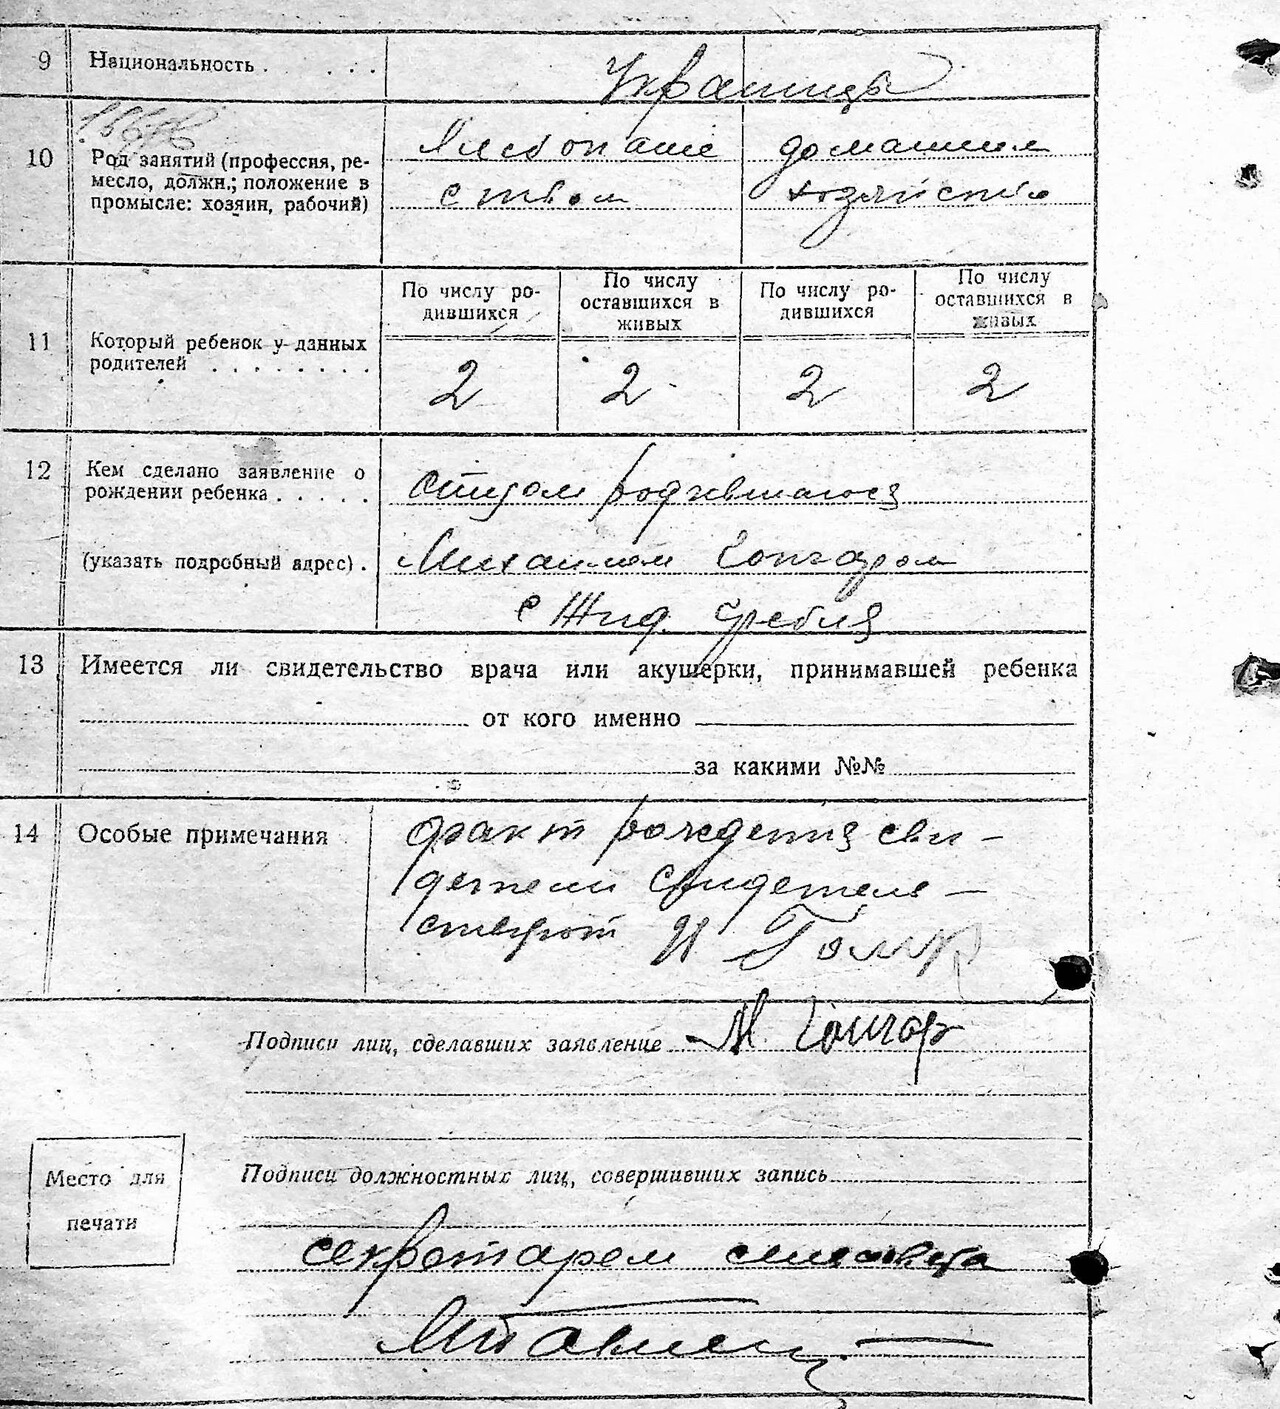 9 Национальность . . . . .
Украинцы
10 Род занятий (профессия, ре-
месло, должн.; положение в
промысле: хозяин, рабочий)
Хлебопаше
ством
домашнем
хозяйство
11 Который ребенок у данных
родителей . . . . . . . .
По числу ро-
дившихся
По числу
оставшихся в
живых
По числу ро-
дившихся
По числу
оставшихся в
живых
2 2 2 2
12 Кем сделано заявление о
рождении ребенка . . . . .
отцом родившагося
(указать подробный адрес) .
Михаилом Гончаром
с Жид. Гребля
13 Имеется ли свидетельство врача или акушерки, принимавшей ребенка
от кого именно
за какими №№
14 Особые примечания
факт рождения сви-
детели свидетель-
ствуют И
Подписи лиц, сделавших заявление М. Гончар
Место для
печати
Подписи должностных лиц, совершивших запись
секретарем сельсовета